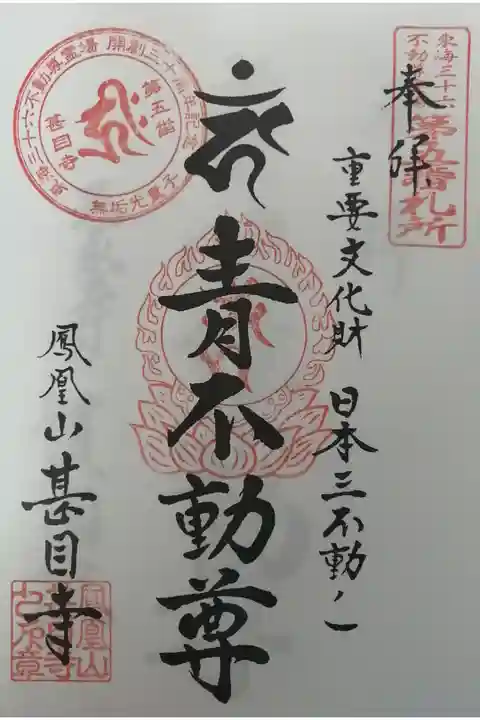 東海三十六
不動尊
第五番札所
奉拝
重要文化財 日本三不動ノ一
青不動尊
東海三十六不動尊霊場 開創三十周年記念
第五番
甚目寺
無垢光童子
鳳凰山甚目寺
鳳凰山
甚目寺